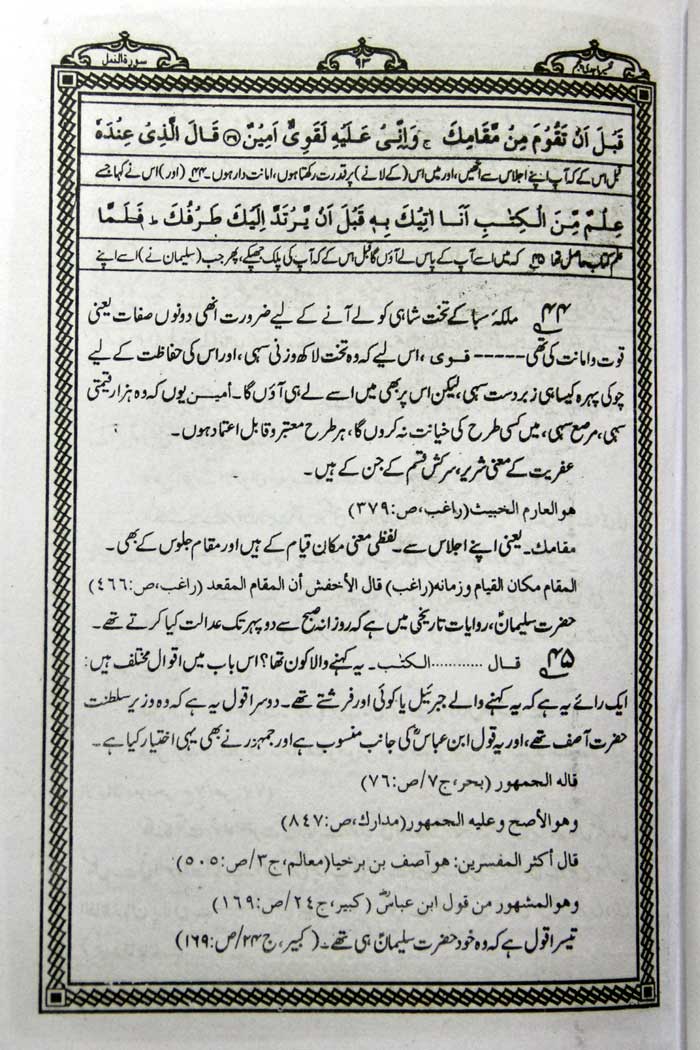 سورة النمل
۹۳
قَبۡلَ اَنۡ تَقُوۡمَ مِنۡ مَّقَامِكَ ج وَاِنِّیۡ عَلَیۡهِ لَقَوِیٌّ اَمِیۡنٌ ﴿۳۹﴾ قَالَ الَّذِیۡ عِنۡدَهٗ
قبل اس کے کہ آپ اپنے اجلاس سے اٹھیں، اور میں اس (کے لانے) پر قدرت رکھتا ہوں، امانت دار ہوں۔ ۴۴ (اور) اس نے کہا جسے
عِلۡمٌ مِّنَ الۡكِتٰبِ اَنَا اٰتِیۡكَ بِهٖ قَبۡلَ اَنۡ یَّرۡتَدَّ اِلَیۡكَ طَرۡفُكَ ط فَلَمَّا
علم کتاب حاصل تھا ۴۵ کہ میں اسے آپ کے پاس لے آؤں گا قبل اس کے کہ آپ کی پلک جھپکے، پھر جب (سلیمان نے) اسے اپنے
۴۴ ملکۂ سبا کے تخت شاہی کو لے آنے کے لیے ضرورت انھی دونوں صفات یعنی
قوت و امانت کی تھی ----- قوی، اس لیے کہ وہ تخت لاکھ وزنی سہی، اور اس کی حفاظت کے لیے
چوکی پہرہ کیسا ہی زبردست سہی، لیکن اس پر بھی میں اسے لے ہی آؤں گا۔ أمین یوں کہ وہ ہزار قیمتی
سہی، مرصع سہی، میں کسی طرح کی خیانت نہ کروں گا، ہر طرح معتبر و قابل اعتماد ہوں۔
عفریت کے معنی شریر، سرکش قسم کے جن کے ہیں۔
هو العارم الخبیث (راغب، ص: ۳۷۹)
مقامك۔ یعنی اپنے اجلاس سے۔ لفظی معنی مکان قیام کے ہیں اور مقام جلوس کے بھی۔
المقام مکان القیام وزمانه (راغب) قال الأخفش أن المقام المقعد (راغب، ص: ۴۶۶)
حضرت سلیمانؑ، روایات تاریخی میں ہے کہ روزانہ صبح سے دو پہر تک عدالت کیا کرتے تھے۔
۴۵ قال ............ الکتٰب۔ یہ کہنے والا کون تھا؟ اس باب میں اقوال مختلف ہیں:
ایک رائے یہ ہے کہ یہ کہنے والے جبرئیل یا کوئی اور فرشتے تھے۔ دوسرا قول یہ ہے کہ وہ وزیر سلطنت
حضرت آصف تھے، اور یہ قول ابن عباسؓ کی جانب منسوب ہے اور جمہور نے بھی یہی اختیار کیا ہے۔
قاله الجمهور (بحر، ج۷/ص: ۷۶)
وهو الأصح وعلیه الجمهور (مدارك، ص: ۸۴۷)
قال أکثر المفسرین: هو آصف بن برخیا (معالم، ج۳/ص: ۵۰۵)
وهو المشهور من قول ابن عباسؓ (کبیر، ج۲۴/ص: ۱۶۹)
تیسرا قول ہے کہ وہ خود حضرت سلیمانؑ ہی تھے۔ (کبیر، ج۲۴/ص: ۱۶۹)